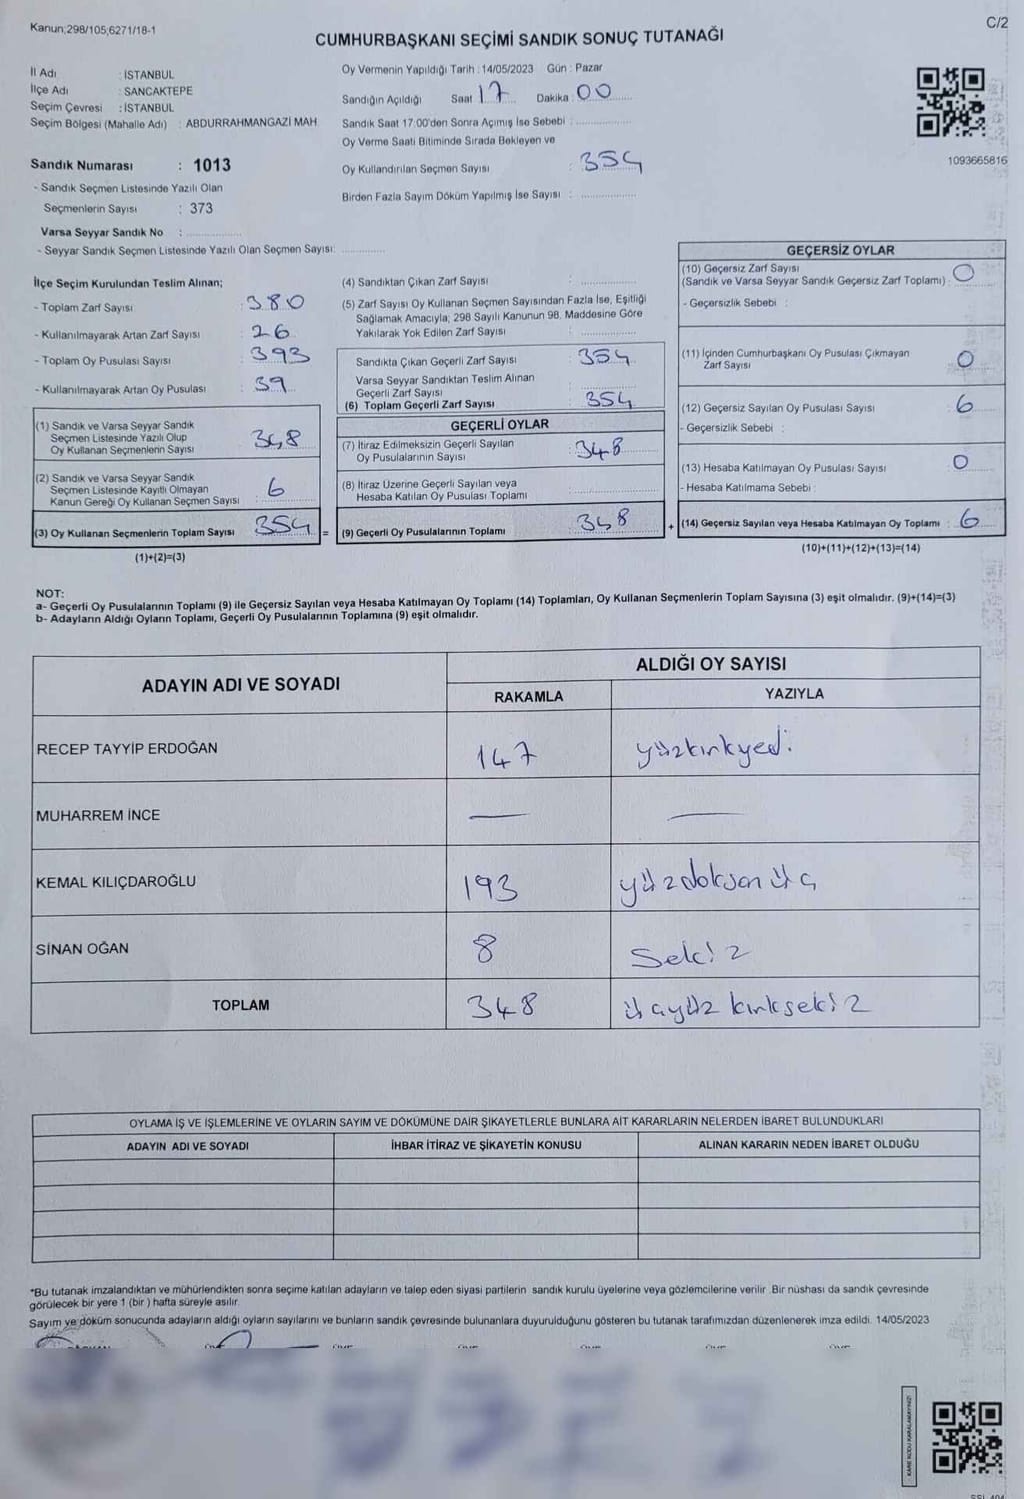 Kanun;298/105;6271/18-1
C/2
CUMHURBAŞKANI SEÇİMİ SANDIK SONUÇ TUTANAĞI
İl Adı : İSTANBUL
İlçe Adı : SANCAKTEPE
Seçim Çevresi : İSTANBUL
Seçim Bölgesi (Mahalle Adı) : ABDURRAHMANGAZİ MAH
Sandık Numarası : 1013
- Sandık Seçmen Listesinde Yazılı Olan
Seçmenlerin Sayısı : 373
Varsa Seyyar Sandık No :
- Seyyar Sandık Seçmen Listesinde Yazılı Olan Seçmen Sayısı:
Oy Vermenin Yapıldığı Tarih : 14/05/2023 Gün : Pazar
Sandığın Açıldığı Saat 17 Dakika : 00
Sandık Saat 17:00'den Sonra Açımış İse Sebebi :
Oy Verme Saati Bitiminde Sırada Bekleyen ve
Oy Kullandırılan Seçmen Sayısı : 354
Birden Fazla Sayım Döküm Yapılmış İse Sayısı :
1093665816
İlçe Seçim Kurulundan Teslim Alınan;
- Toplam Zarf Sayısı : 380
- Kullanılmayarak Artan Zarf Sayısı : 26
- Toplam Oy Pusulası Sayısı : 393
- Kullanılmayarak Artan Oy Pusulası : 39
(1) Sandık ve Varsa Seyyar Sandık
Seçmen Listesinde Yazılı Olup
Oy Kullanan Seçmenlerin Sayısı : 348
(2) Sandık ve Varsa Seyyar Sandık
Seçmen Listesinde Kayıtlı Olmayan
Kanun Gereği Oy Kullanan Seçmen Sayısı : 6
(3) Oy Kullanan Seçmenlerin Toplam Sayısı : 354 =
(1)+(2)=(3)
(4) Sandıktan Çıkan Zarf Sayısı :
(5) Zarf Sayısı Oy Kullanan Seçmen Sayısından Fazla İse, Eşitliği
Sağlamak Amacıyla; 298 Sayılı Kanunun 98. Maddesine Göre
Yakılarak Yok Edilen Zarf Sayısı :
Sandıkta Çıkan Geçerli Zarf Sayısı : 354
Varsa Seyyar Sandıktan Teslim Alınan
Geçerli Zarf Sayısı :
(6) Toplam Geçerli Zarf Sayısı : 354
GEÇERLİ OYLAR
(7) İtiraz Edilmeksizin Geçerli Sayılan
Oy Pusulalarının Sayısı : 348
(8) İtiraz Üzerine Geçerli Sayılan veya
Hesaba Katılan Oy Pusulası Toplamı :
(9) Geçerli Oy Pusulalarının Toplamı : 348 +
GEÇERSİZ OYLAR
(10) Geçersiz Zarf Sayısı
(Sandık ve Varsa Seyyar Sandık Geçersiz Zarf Toplamı) : 0
- Geçersizlik Sebebi :
(11) İçinden Cumhurbaşkanı Oy Pusulası Çıkmayan
Zarf Sayısı : 0
(12) Geçersiz Sayılan Oy Pusulası Sayısı : 6
- Geçersizlik Sebebi :
(13) Hesaba Katılmayan Oy Pusulası Sayısı : 0
- Hesaba Katılmama Sebebi :
(14) Geçersiz Sayılan veya Hesaba Katılmayan Oy Toplamı : 6
(10)+(11)+(12)+(13)=(14)
NOT:
a- Geçerli Oy Pusulalarının Toplamı (9) ile Geçersiz Sayılan veya Hesaba Katılmayan Oy Toplamı (14) Toplamları, Oy Kullanan Seçmenlerin Toplam Sayısına (3) eşit olmalıdır. (9)+(14)=(3)
b- Adayların Aldığı Oyların Toplamı, Geçerli Oy Pusulalarının Toplamına (9) eşit olmalıdır.
ADAYIN ADI VE SOYADI
ALDIĞI OY SAYISI
RAKAMLA YAZIYLA
RECEP TAYYİP ERDOĞAN 147 yüzkırkyedi
MUHARREM İNCE — —
KEMAL KILIÇDAROĞLU 193 yüzdoksan üç
SİNAN OĞAN 8 Sekiz
TOPLAM 348 üçyüz kırksekiz
OYLAMA İŞ VE İŞLEMLERİNE VE OYLARIN SAYIM VE DÖKÜMÜNE DAİR ŞİKAYETLERLE BUNLARA AİT KARARLARIN NELERDEN İBARET BULUNDUKLARI
ADAYIN ADI VE SOYADI İHBAR İTİRAZ VE ŞİKAYETİN KONUSU ALINAN KARARIN NEDEN İBARET OLDUĞU
*Bu tutanak imzalandıktan ve mühürlendikten sonra seçime katılan adayların ve talep eden siyasi partilerin sandık kurulu üyelerine veya gözlemcilerine verilir. Bir nüshası da sandık çevresinde
görülecek bir yere 1 (bir) hafta süreyle asılır.
Sayım ve döküm sonucunda adayların aldığı oyların sayılarını ve bunların sandık çevresinde bulunanlara duyurulduğunu gösteren bu tutanak tarafımızdan düzenlenerek imza edildi. 14/05/2023
KARE KODU KARALAMAYINIZ!